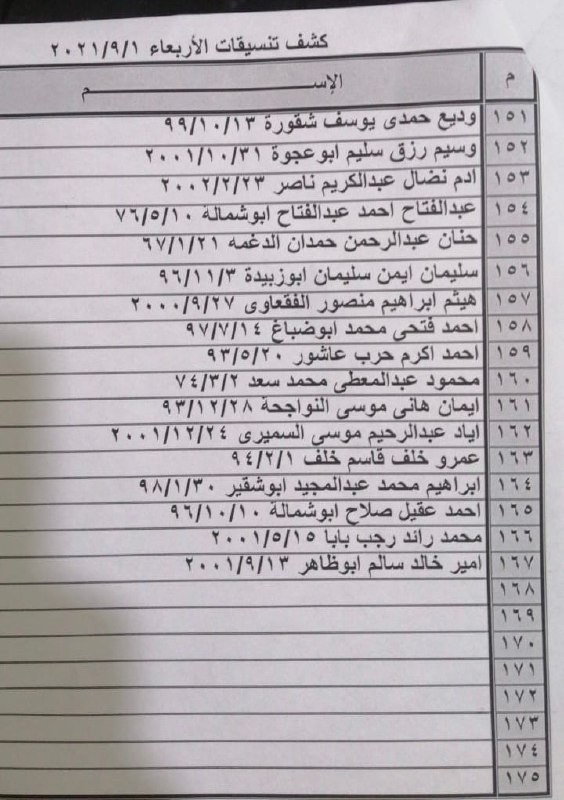 كشف تنسيقات الأربعاء ٢٠٢١/٩/١
م الإســـــــــم
١٥١ وديع حمدى يوسف شقورة ٩٩/١٠/١٣
١٥٢ وسيم رزق سليم ابوعجوة ٢٠٠١/١٠/٣١
١٥٣ ادم نضال عبدالكريم ناصر ٢٠٠٢/٢/٢٣
١٥٤ عبدالفتاح احمد عبدالفتاح ابوشمالة ٧٦/٥/١٠
١٥٥ حنان عبدالرحمن حمدان الدغمه ٦٧/١/٢١
١٥٦ سليمان ايمن سليمان ابوزبيدة ٩٦/١١/٣
١٥٧ هيثم ابراهيم منصور الفقعاوى ٢٠٠٠/٩/٢٧
١٥٨ احمد فتحى محمد ابوضباغ ٩٧/٧/١٤
١٥٩ احمد اكرم حرب عاشور ٩٣/٥/٢٠
١٦٠ محمود عبدالمعطى محمد سعد ٧٤/٣/٢
١٦١ ايمان هانى موسى النواجحة ٩٣/١٢/٢٨
١٦٢ اياد عبدالرحيم موسى السميرى ٢٠٠١/١٢/٢٤
١٦٣ عمرو خلف قاسم خلف ٩٤/٢/١
١٦٤ ابراهيم محمد عبدالمجيد ابوشقير ٩٨/١/٣٠
١٦٥ احمد عقيل صلاح ابوشمالة ٩٦/١٠/١٠
١٦٦ محمد رائد رجب بابا ٢٠٠١/٥/١٥
١٦٧ امير خالد سالم ابوظاهر ٢٠٠١/٩/١٣
١٦٨
١٦٩
١٧٠
١٧١
١٧٢
١٧٣
١٧٤
١٧٥